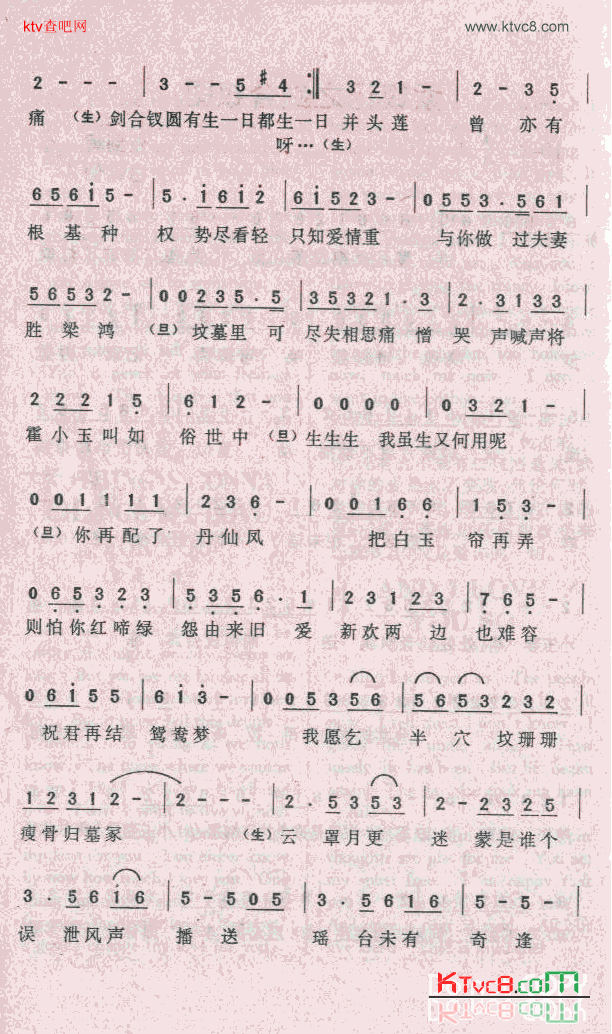 ktv查吧网 www.ktvc8.com
2 - - - | 3 - - 5 #4 :‖ 3 2 1 - | 2 - 3 5
痛 (生)剑合钗圆有生一日都生一日 并头莲 曾 亦有
呀…(生)
6 5 6 1 5 - | 5 . 1 6 1 2 | 6 1 5 2 3 - | 0 5 5 3 . 5 6 1
根基种 权 势尽看轻 只知爱情重 与你做 过夫妻
5 6 5 3 2 - | 0 0 2 3 5 . 5 | 3 5 3 2 1 . 3 | 2 . 3 1 3 3
胜梁鸿 (旦)坟墓里 可 尽失相思痛 僧 哭 声喊声将
2 2 2 1 5 | 6 1 2 - | 0 0 0 0 | 0 3 2 1 -
霍小玉叫如 俗世中 (旦)生生生 我虽生又何用呢
0 0 1 1 1 1 | 2 3 6 - | 0 0 1 6 6 | 1 5 3 -
(旦)你再配了 丹仙凤 把白玉 帘再弄
0 6 5 3 2 3 | 5 3 5 6 . 1 | 2 3 1 2 3 | 7 6 5 -
则怕你红啼绿 怨由来旧 爱 新欢两 边 也难容
0 6 1 5 5 | 6 1 3 - | 0 0 5 3 5 6 | 5 6 5 3 2 3 2
祝君再结 鸳鸯梦 我愿乞 半 穴 坟珊珊
1 2 3 1 2 - | 2 - - - | 2 . 5 3 5 3 | 2 - 2 3 2 5
瘦骨归墓冢 (生)云 罩月更 迷 蒙是谁个
3 . 5 6 1 6 | 5 - 5 0 5 | 3 . 5 6 1 6 | 5 - 5 -
误 泄风声 播 送 瑶 台未有 奇 逢
KTvc8.com